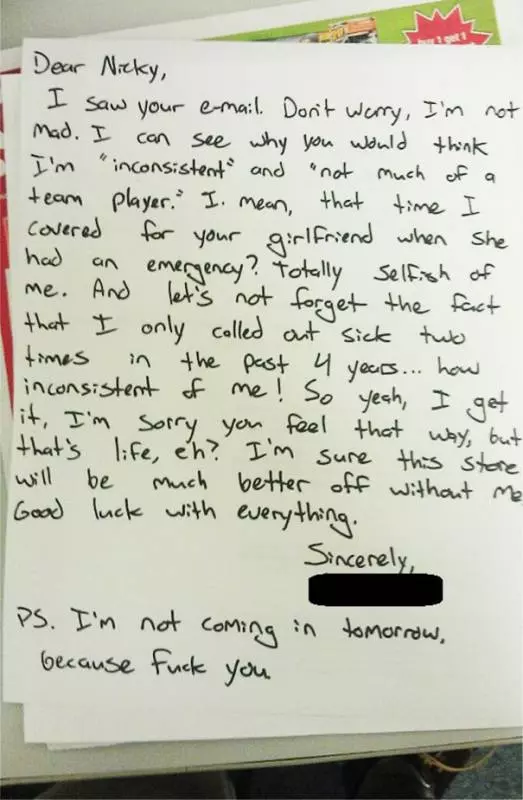 buy 1 get 1
Dear Nicky,
I saw your e-mail. Don't worry, I'm not
mad. I can see why you would think
I'm "inconsistent" and "not much of a
team player." I. mean, that time I
covered for your girlfriend when she
had an emergency? Totally selfish of
me. And let's not forget the fact
that I only called out sick two
times in the past 4 years... how
inconsistent of me! So yeah, I get
it, I'm sorry you feel that way, but
that's life, eh? I'm sure this store
will be much better off without me
Good luck with everything.
Sincerely,
PS. I'm not coming in tomorrow,
because fuck you.